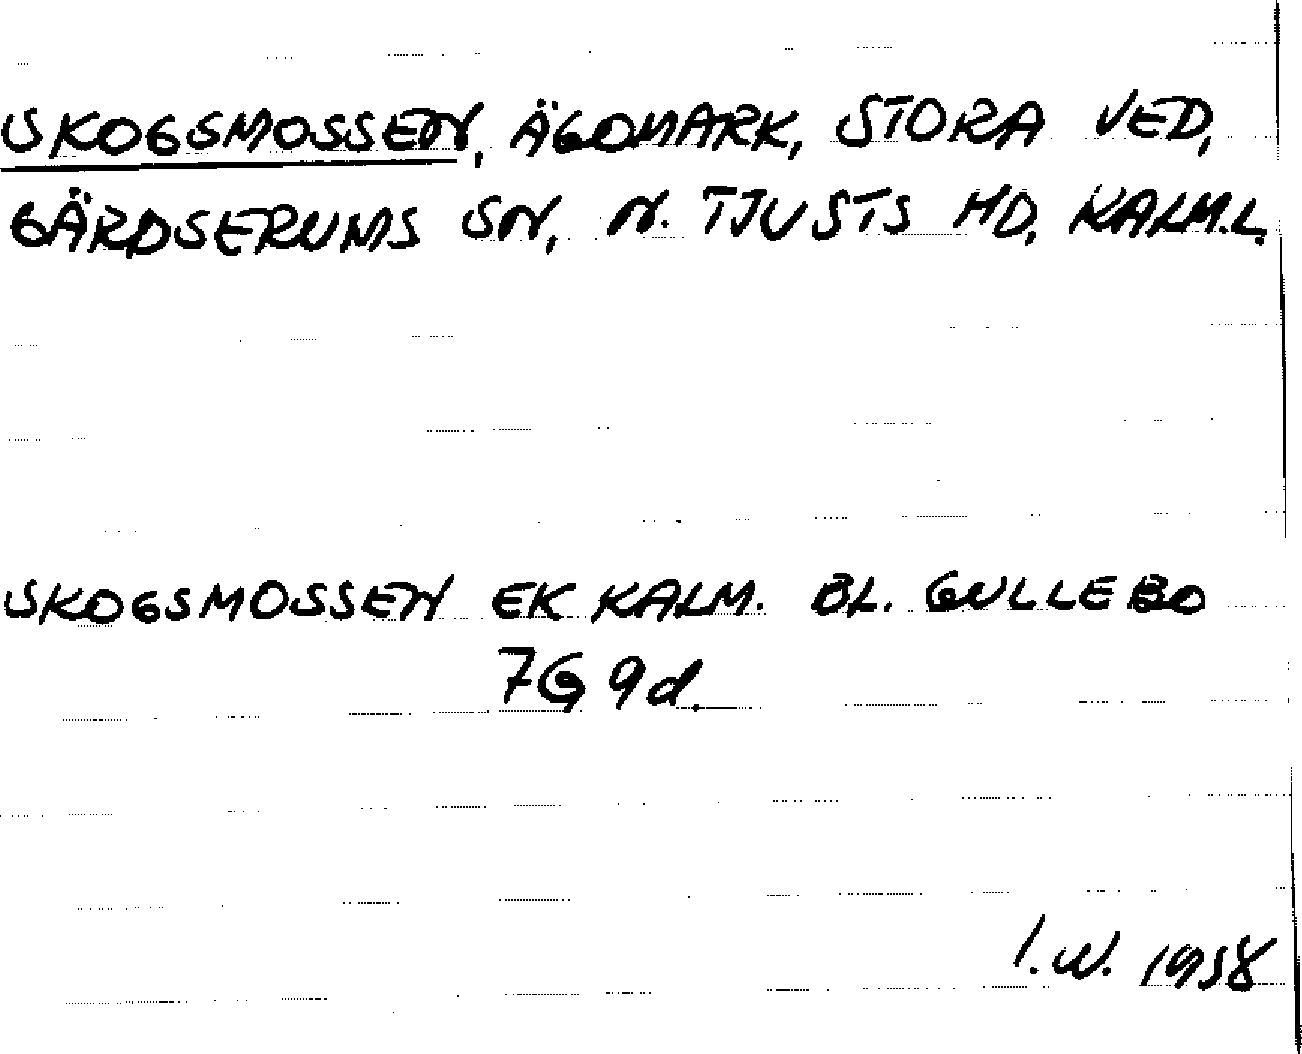 SKOGSMOSSEN, ÄGOMARK, STORA VED,
GÄRDSERUMS SN, N. TJUSTS HD, KALM.L.
SKOGSMOSSEN EK KALM. BL. GULLEBO
7G 9d.
I.W. 1958